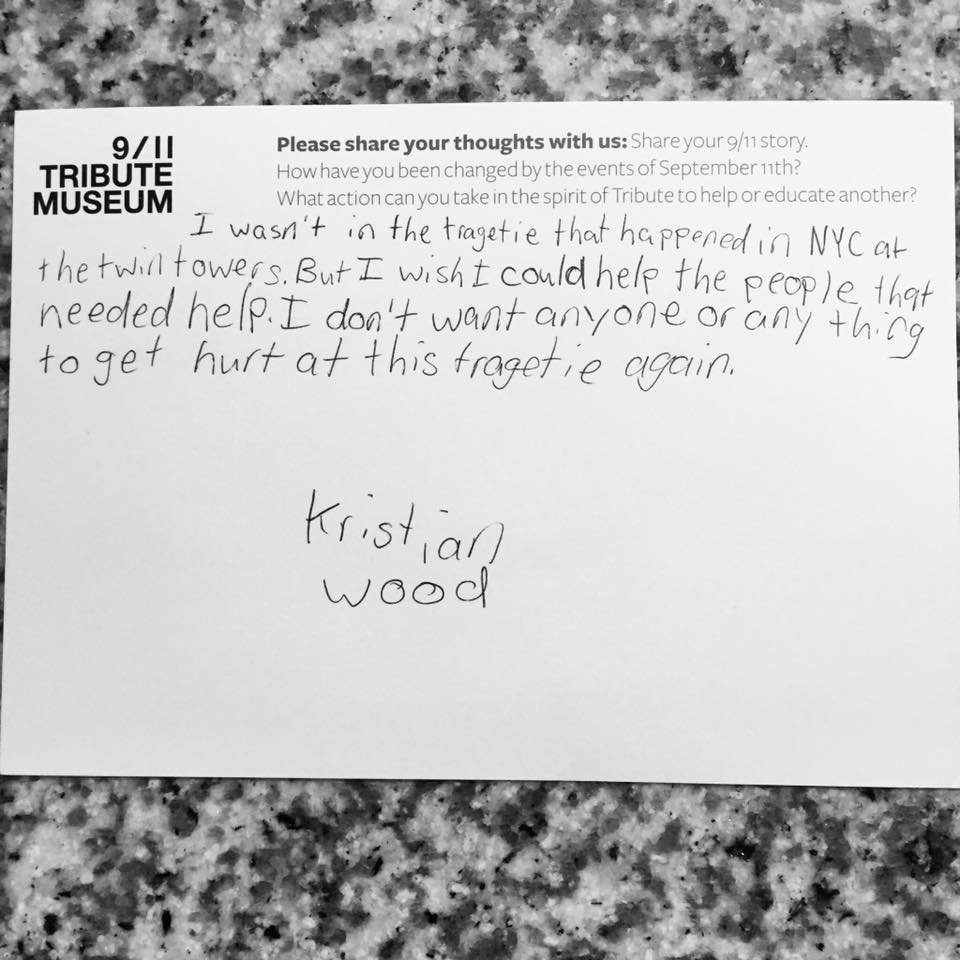 9/11
TRIBUTE
MUSEUM
Please share your thoughts with us: Share your 9/11 story.
How have you been changed by the events of September 11th?
What action can you take in the spirit of Tribute to help or educate another?
I wasn't in the tragetie that happened in NYC at
the twin towers. But I wish I could help the people that
needed help. I don't want anyone or any thing
to get hurt at this tragetie again.
Kristian
wood